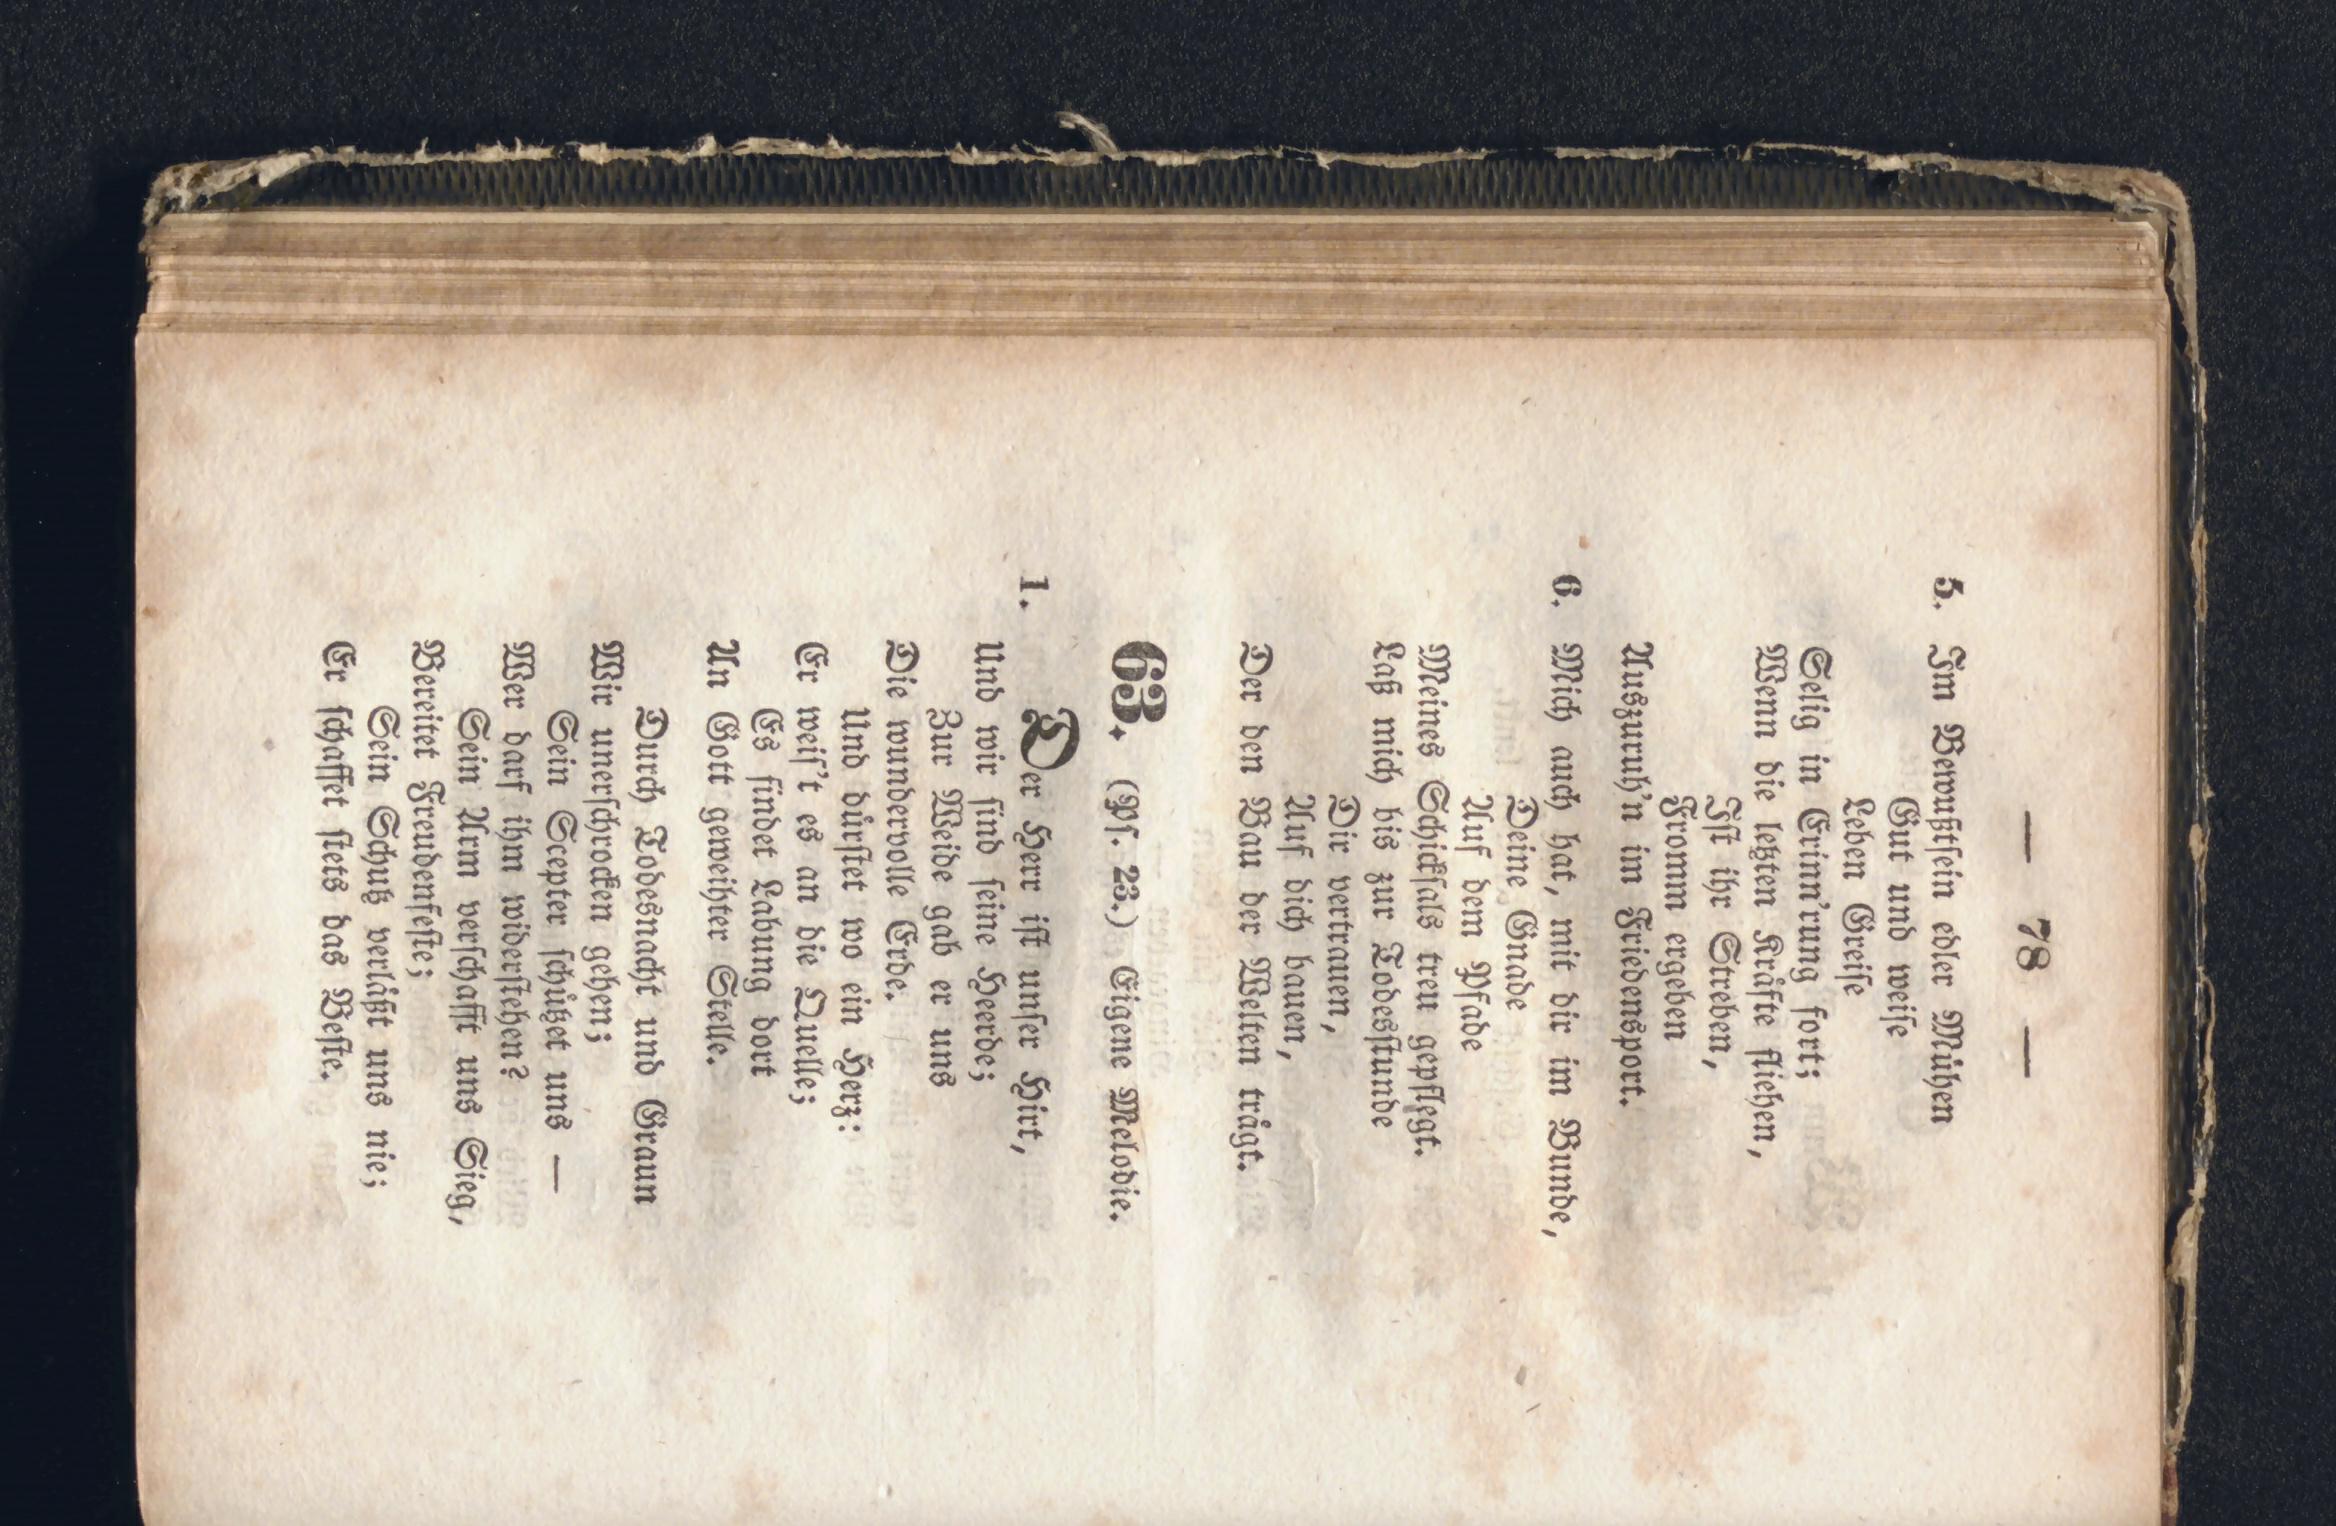 — 78 —
5. Im Bewußtſein edler Mühen
Gut und weiſe
Leben Greiſe
Selig in Erinn'rung fort;
Wenn die letzten Kräfte fliehen,
Iſt ihr Streben,
Fromm ergeben
Auszuruh'n im Friedensport.
6. Mich auch hat, mit dir im Bunde,
Deine Gnade
Auf dem Pfade
Meines Schickſals treu gepflegt.
Laß mich bis zur Todesſtunde
Dir vertrauen,
Auf dich bauen,
Der den Bau der Welten trägt.
63. (Pſ. 23.) Eigene Melodie.
1. Der Herr iſt unſer Hirt,
Und wir ſind ſeine Heerde;
Zur Weide gab er uns
Die wundervolle Erde.
Und dürſtet wo ein Herz:
Er weiſ't es an die Quelle;
Es findet Labung dort
An Gott geweihter Stelle.
Durch Todesnacht und Graun
Wir unerſchrocken gehen;
Sein Scepter ſchützet uns —
Wer darf ihm widerſtehen?
Sein Arm verſchafft uns Sieg,
Bereitet Freudenfeſte;
Sein Schutz verläßt uns nie;
Er ſchaffet ſtets das Beſte.